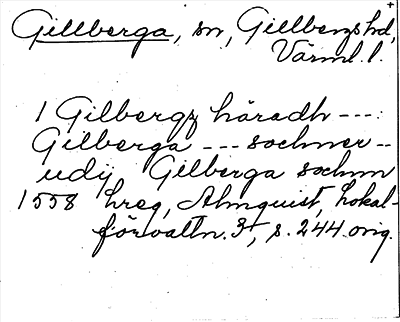 Gillberga, sn, Gillbergs hd,
Värml. l.
I Gilbergz häradh ---:
Gilberga --- sochner --
udij Gilberga sochnn
1558 hreg, Almquist, Lokal-
förvaltn. 3, s. 244. orig.